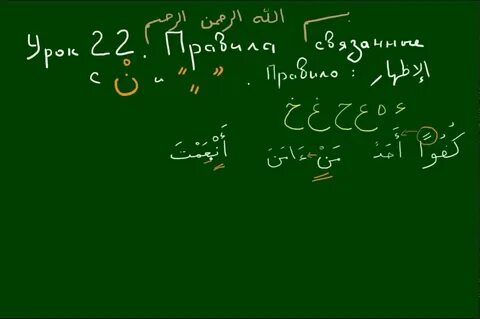 بسم الله الرحمن الرحيم
Урок 22. Правила связанные
с نْ и " " " . Правило: الإظهار
ء ه ع ح غ خ
كُفُوًا أَحَدٌ مَنْ ءَامَنَ أَنْعَمْتَ